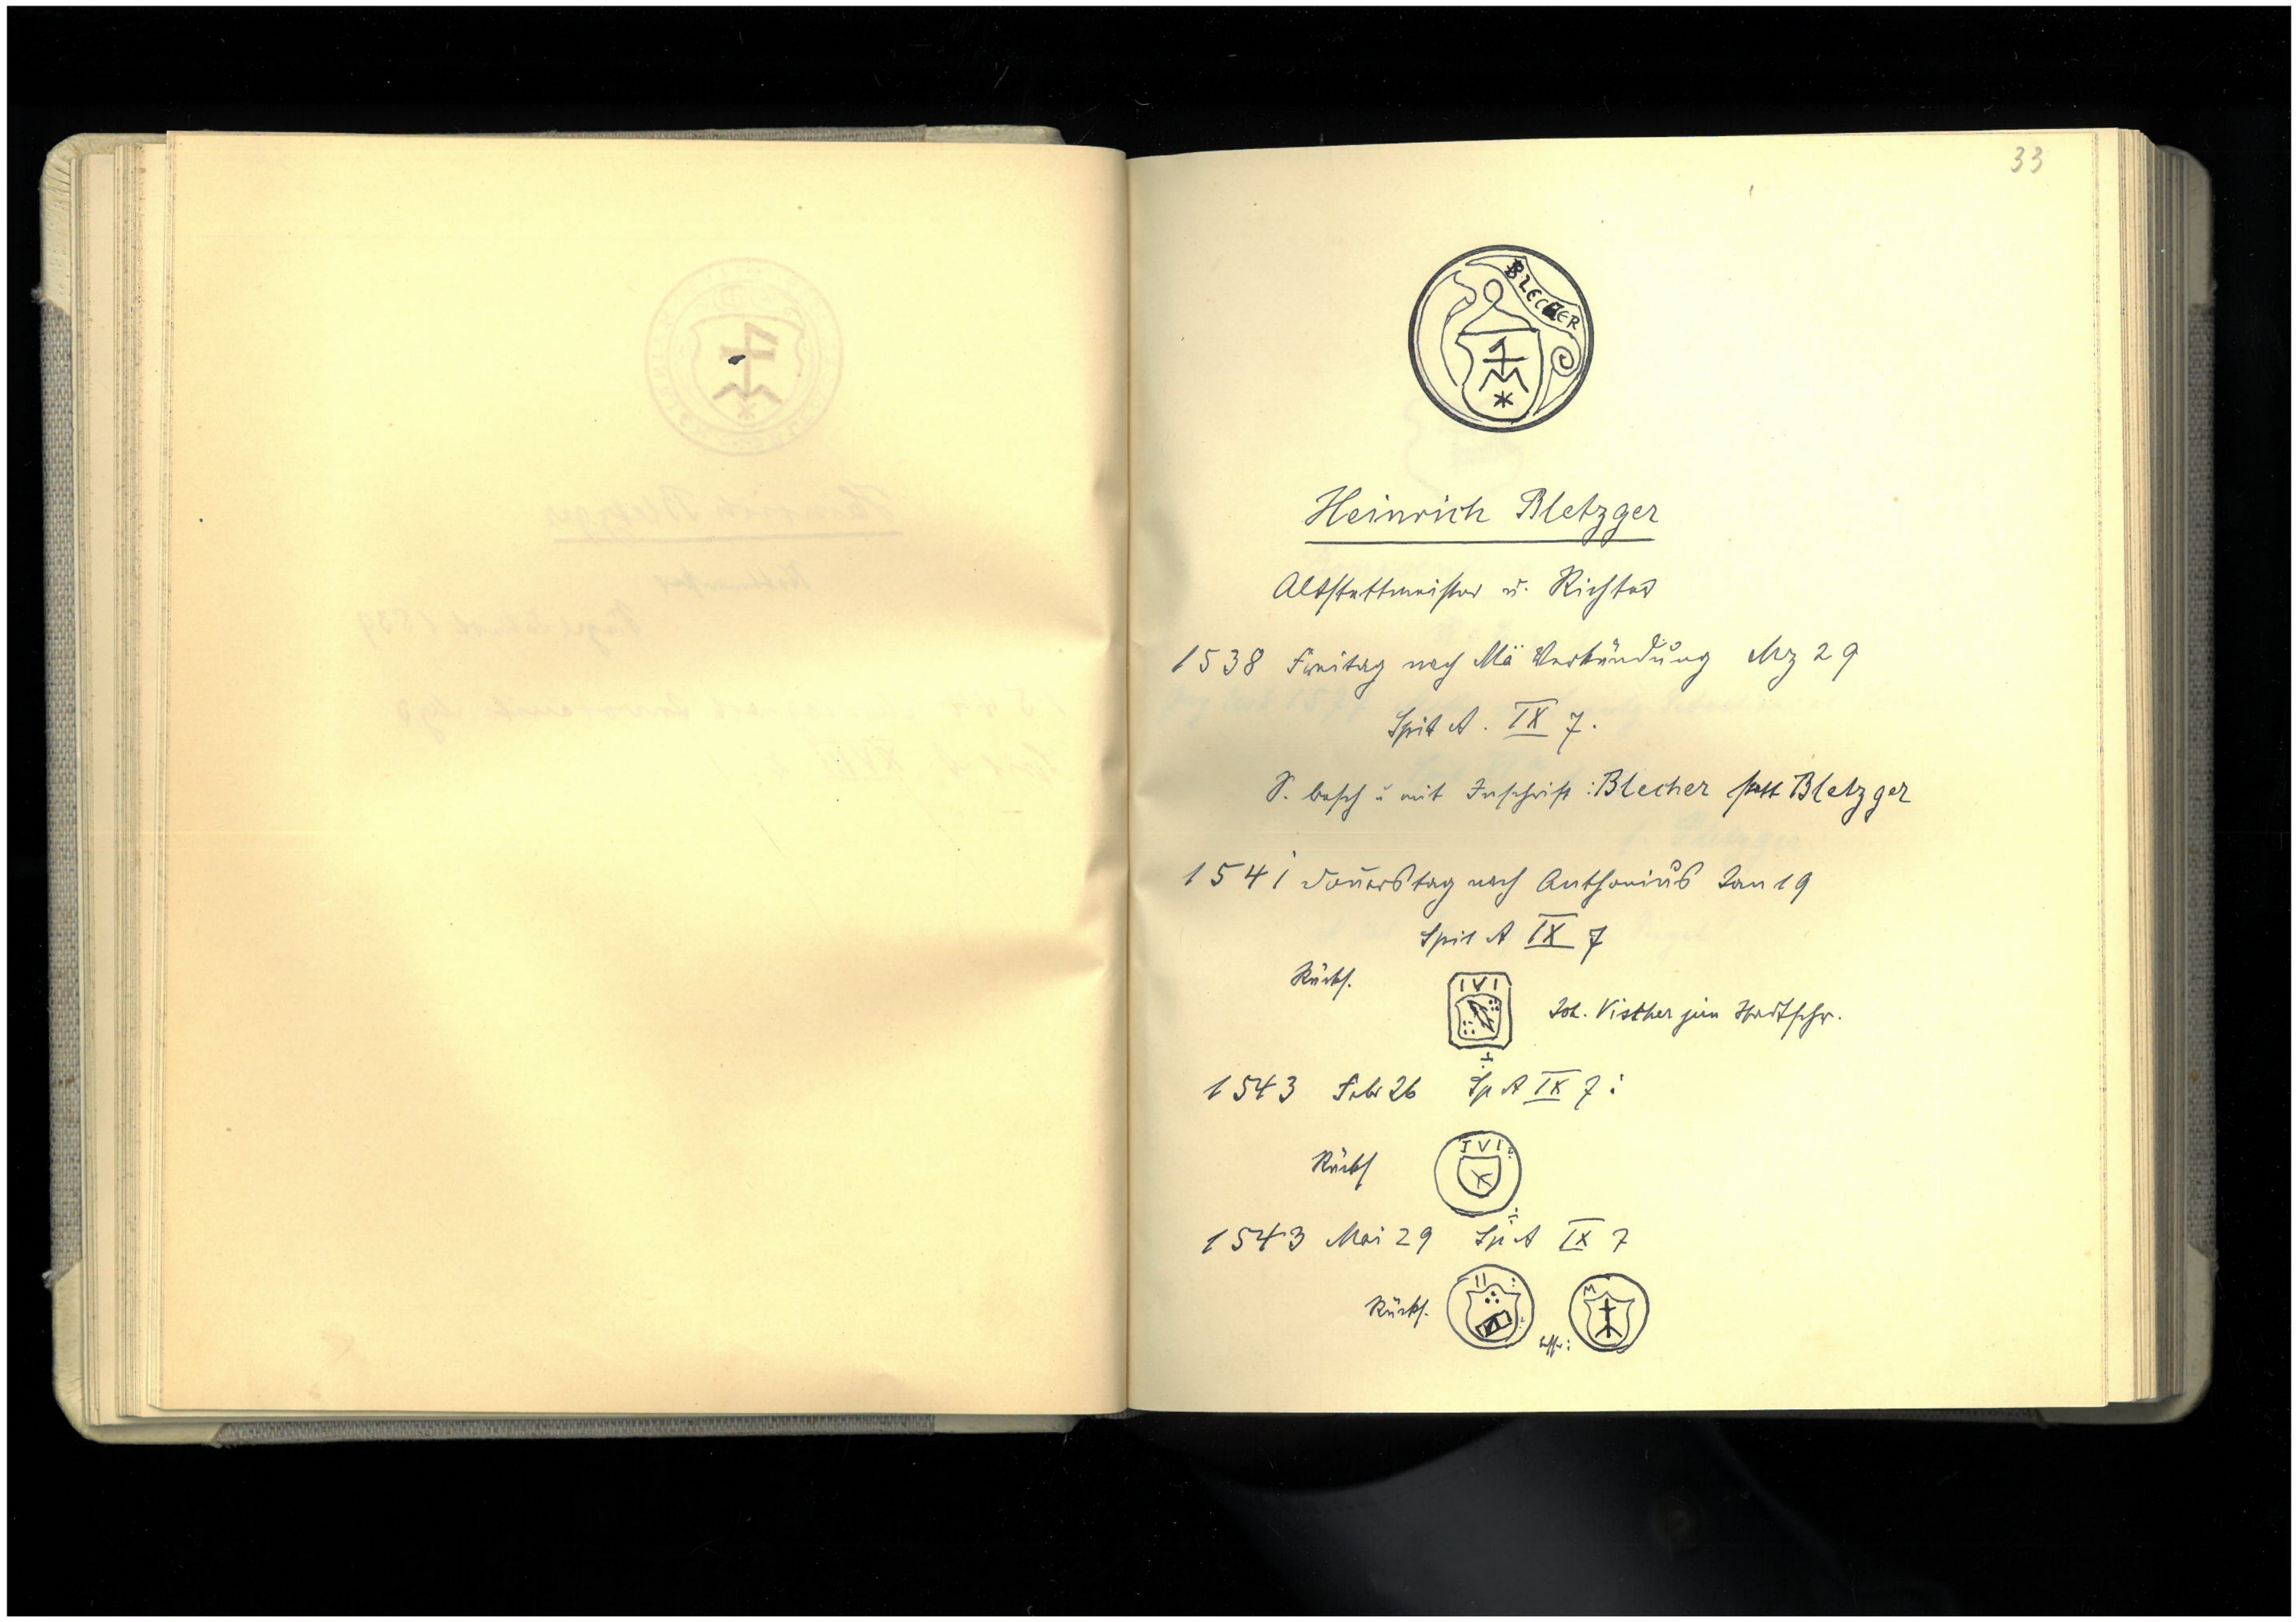 33
BLECHER
Heinrich Bletzger
Altstettmeister u. Richter
1538 Freitag nach Mä Verkündung Mz 29
Spit A. IX 7.
S. besch u mit Inschrift: Blecher statt Bletzger
1541 Donerstag nach Anthonius Jan 19
Spit A IX 7
Rücks.
IVI
Joh. Vischer jun Stadtschr.
1543 Febr 26 Sp A IX 7
Rücks
IVI
1543 Mai 29 Sp A IX 7
Rücks.
M